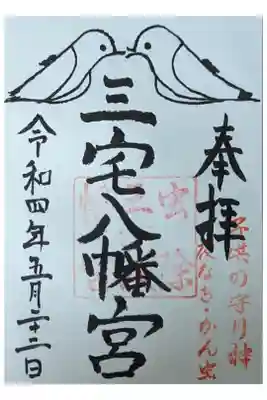 奉拝
子供の守り神
夜なき・かん虫
虫除
三宅八幡宮
令和四年五月二十二日